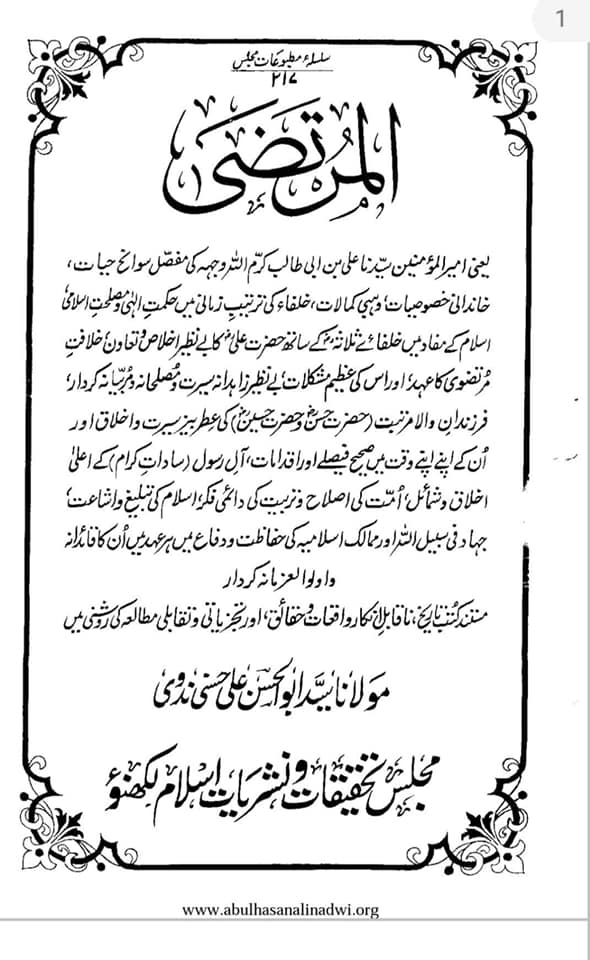 1
سلسلۂ مطبوعات مجلس
۲۱۷
المُرتَضیٰ
یعنی امیر المؤمنین سیّدنا علی بن ابی طالب کرّم اللہ وجہہ کی مفصل سوانح حیات،
خاندانی خصوصیات، وہبی کمالات، خلفاء کی ترتیبِ زمانی میں حکمتِ الٰہی و مصلحتِ اسلامی،
اسلام کے مفاد میں خلفائے ثلاثہؓ کے ساتھ حضرت علیؓ کا بے نظیر اخلاص و تعاون، خلافتِ
مرتضوی کا عہد، اور اس کی عظیم مشکلات، بے نظیر زاہدانہ سیرت و مصلحانہ و مربیانہ کردار،
فرزندانِ والا مرتبت (حضرت حسنؓ و حضرت حسینؓ) کی عطر بیز سیرت و اخلاق اور
اُن کے اپنے اپنے وقت میں صحیح فیصلے اور اقدامات، آلِ رسول (ساداتِ کرام) کے اعلیٰ
اخلاق و شمائل، اُمّت کی اصلاح و تربیت کی دائمی فکر، اسلام کی تبلیغ و اشاعت،
جہاد فی سبیل اللہ اور ممالک اسلامیہ کی حفاظت و دفاع میں ہر عہد میں اُن کا قائدانہ
و اولوالعزمانہ کردار
مستند کتب تاریخ، ناقابلِ انکار واقعات و حقائق، اور تجزیاتی و تقابلی مطالعہ کی روشنی میں
مولانا سیّد ابوالحسن علی حسنی ندوی
مجلس تحقیقات و نشریات اسلام لکھنؤ
www.abulhasanalinadwi.org